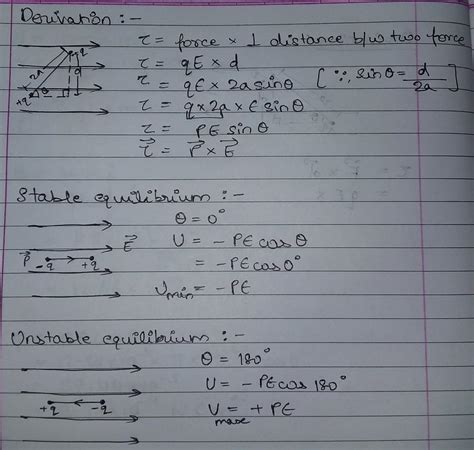 Derivation :-
τ = force × ⊥ distance b/w two force
τ = qE × d
τ = qE × 2a sinθ [∵ sinθ = d/2a]
τ = q × 2a × E sinθ
τ = PE sinθ
τ⃗ = P⃗ × E⃗
-q
2a
d
+q
θ
Stable equilibrium :-
θ = 0°
E⃗
U = -PE cosθ
P⃗ -q +q
= -PE cos0°
Umin = -PE
Unstable equilibrium :-
θ = 180°
U = -PE cos 180°
+q -q
U = +PE
max